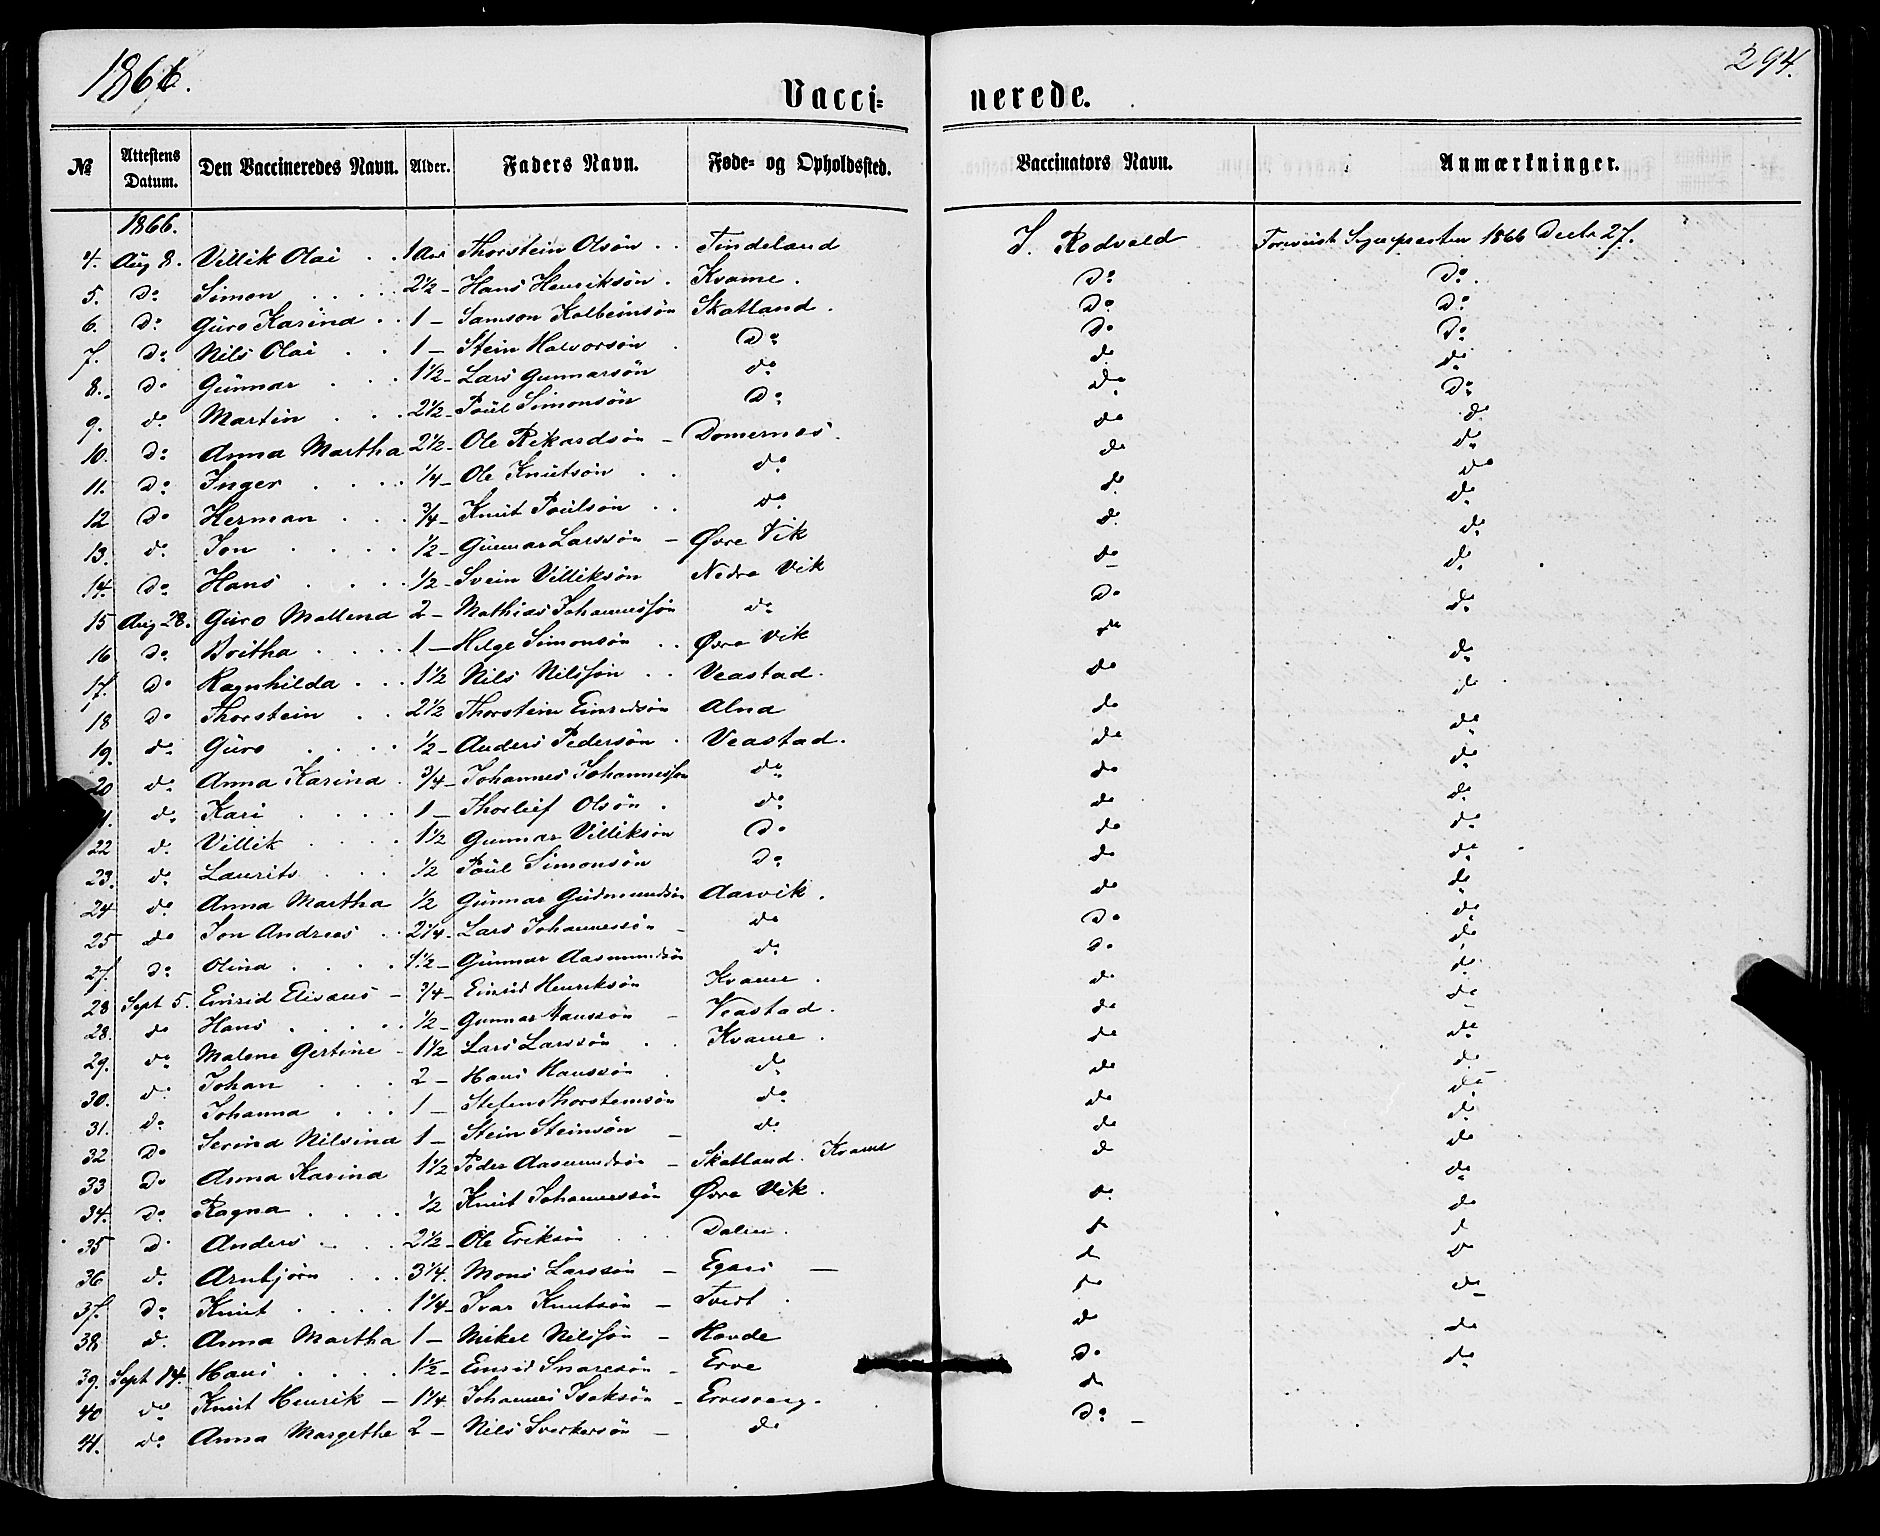 1866.
294.
Vacci= nerede.
№ Attestens Datum. Den Vaccineredes Navn. Alder. Faders Navn. Føde= og Opholdssted. Vaccinators Navn. Anmærkninger.
1866.
4. Aug 8. Villik Olai . . 1 Aar Thorstein Olsön . . Tindeland J. Rodvald Forevist Sognepresten 1866 Decbr 27.
5. Do Simon . . . . 2½ - Hans Henriksön . Kvame . Do Do .
6. Do Guro Karina . . 1 - Samson Kolbeinsön Skatland . Do Do
7. Do Nils Olai . . 1 - Stein Halvorsön . Do Do Do
8. Do Gunnar . . . 1½ - Lars Gunnarsön do do do
9. do Martin . . . 2½ - Poul Simonsön Do do Do
10. Do Anna Martha 2½ - Ole Rikardsön - Domernes . do do
11. Do Inger . . . . ¼ - Ole Knutsön . . do do do
12 Do Herman . . . ¾ - Knut Poulsön . . do do do
13. do Jon . . . . ½ - Gunnar Larssön - Øvre Vik do do
14. Do Hans . . . . ½ - Svein Villiksön Nedre Vik do do
15 Aug 28. Guro Mallena 2 - Mathias Johannessön do Do do
16 Do Britha . . . . 1 - Helge Simonsön . . Øvre Vik do do
17. Do Ragnhilda . . . 1½ Nils Nilssön . . Veastad . do do
18 Do Thorstein . . 2½ Thorstein Einridsön Alna do do
19. do Guro . . . . ½ - Anders Pedersön . Veastad . do do
20 do Anna Karina . ¾ - Johannes Johannessön do do do
1. do Kari . . . . 1 - Thorleif Olsön . do do do
22 do Villik . . . . 1½ Gunnar Villiksön Do do do
23. do Laurits . . . ½ Poul Simonsön Do do do
24 do Anna Martha ½ Gunnar Gudmundsön Aarvik . do do
25 do Jon Andreas . . 2¼ - Lars Johannessön - do Do do
27. Do Olina . . . . 1½ - Gunnar Aasmundsön do Do do
28 Sept 5. Einrid Elisæus - ¾ - Einrid Henriksön Kvame . do do
28. do Hans . . . . . ½ - Gunnar Hanssön - Veastad . do do
29. do Malene Gertine - 1½ Lars Larssön . . Kvame . do do
30. do Johan . . . 2 - Hans Hanssön . do do do
31. do Johanna . . . 1 - Stefen Thorsteinsön do do do
32 Do Serina Nilsina 1 - Stein Steinsön - do do do
33 Do Anna Karina 1½ Peder Aasmundsön - Skatland . Kvame d do
34. Do Ragna . . . . ½ Knut Johannessön Øvre Vik . do do
35 D Anders - . . 2½ - Ole Eriksön . . Dalen . d do
36 d. Arnbjörn . . . 3¼ . Mons Larssön - - d d
37. Do Knut . . . . 1¼ - Ivar Knutsön - Tveit . do do
38 d. Anna Martha 1 - Mikel Nilssön - Hovde do do
39. Sept 14. Hans . . . . 1½ - Einrid Snaresön - Erve Do do
40 do Knut Henrik - 1¼ Johannes Isaksön - do do
41. do Anna Margethe 2 - Nils Sverkersön - do Do -